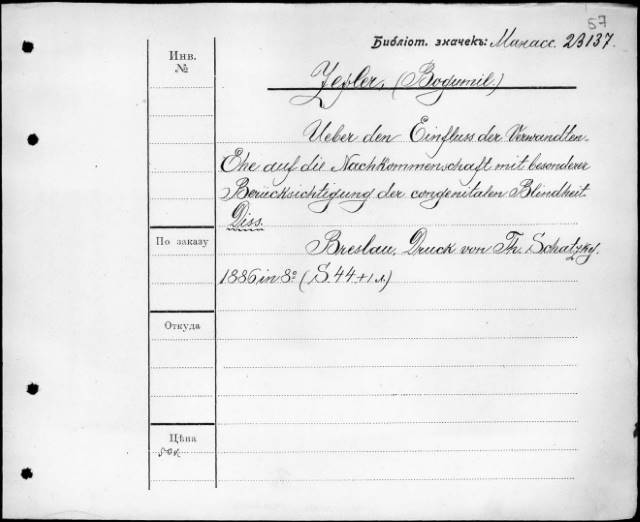 57
Библіот. значекъ: Манасс. 23137.
Инв.
№
Zepler, (Bogumil.)
Ueber den Einfluss der Verwandten-
Ehe auf die Nachkommenschaft mit besonderer
Berücksichtigung der congenitalen Blindheit.
Diss.
По заказу
Breslau, Druck von Th. Schatzky.
1886, in 8º (S. 44 + 1 л.)
Откуда
Цѣна
50к